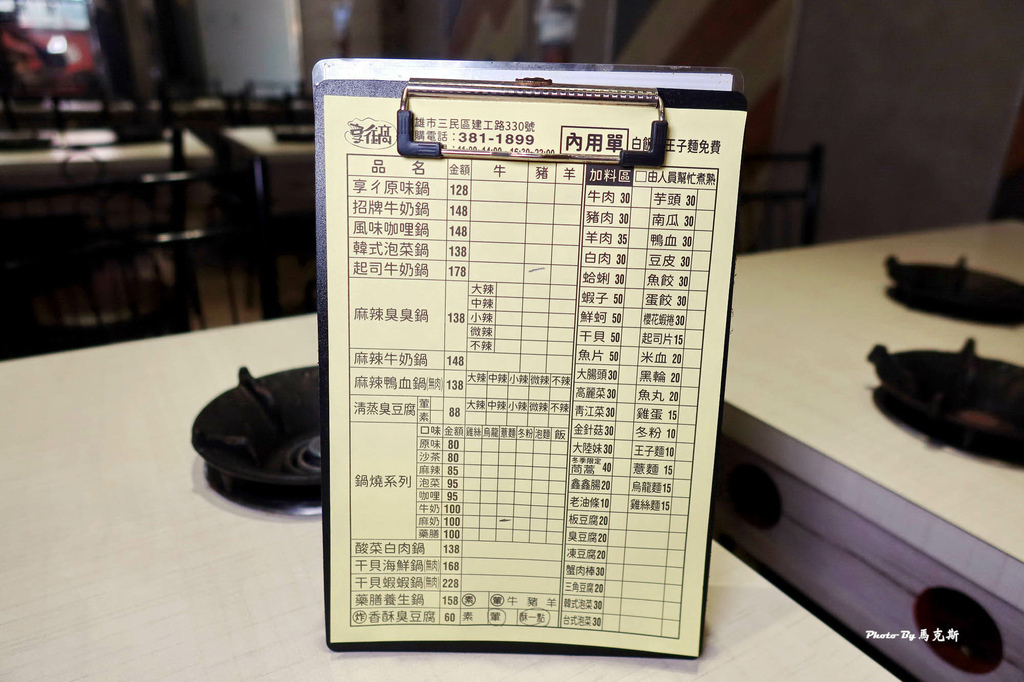 享彳鍋
雄市三民區建工路330號
購電話:381-1899
內用單 白飯 王子麵免費
品名 金額 牛 豬 羊
享彳原味鍋 128
招牌牛奶鍋 148
風味咖哩鍋 148
韓式泡菜鍋 138
起司牛奶鍋 178
麻辣臭臭鍋 138 大辣 中辣 小辣 微辣 不辣
麻辣牛奶鍋 148
麻辣鴨血鍋(無肉) 138 大辣 中辣 小辣 微辣 不辣
清蒸臭豆腐 葷 素 88 大辣 中辣 小辣 微辣 不辣
鍋燒系列 口味 金額 雞絲 烏龍 薏麵 冬粉 泡麵 飯
原味 80
沙茶 80
麻辣 85
泡菜 95
咖哩 95
牛奶 100
麻奶 100
藥膳 100
酸菜白肉鍋 138
干貝海鮮鍋(無肉) 168
干貝蝦蝦鍋(無肉) 228
藥膳養生鍋 158 素 葷 牛 豬 羊
炸 香酥臭豆腐 60 素 葷 酥一點
加料區 □由人員幫忙煮熟
牛肉 30 芋頭 30
豬肉 30 南瓜 30
羊肉 35 鴨血 30
白肉 30 豆皮 30
蛤蜊 30 魚餃 30
蝦子 50 蛋餃 30
鮮蚵 50 櫻花蝦捲 30
干貝 50 起司片 15
魚片 50 米血 20
大腸頭 30 黑輪 20
高麗菜 30 魚丸 20
青江菜 30 雞蛋 15
金針菇 30 冬粉 10
大陸妹 30 王子麵 10
冬季限定 茼蒿 40 薏麵 15
鑫鑫腸 20 烏龍麵 15
老油條 10 雞絲麵 15
板豆腐 20
臭豆腐 20
凍豆腐 20
蟹肉棒 30
三角豆腐 20
韓式泡菜 30
台式泡菜 30
Photo By 馬克斯